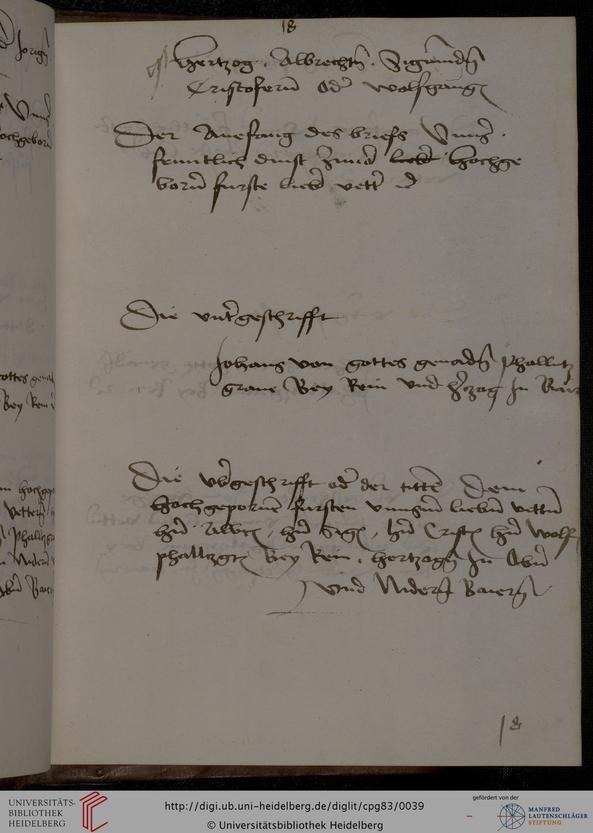 18
Hertzog Albrechtn. Sigmundn
Cristoferun Oder wolfgangen
Der Anefang des briefs Unns.
fruntlich dinst zuuor liebr Hochge
bornr furste lieber vetter
Die vntergeschrifft
Johans von gottes genaden phalltz
graue Bey Rein vnd hertzog In Bair
Die vbergeschrifft oder der tittel Dem
hochgepornen fursten vnnserm lieben vettern
hern Albrn, hern Sigm, hern Cristn hern Wolf
phalltzgrn Bey Rein, hertzogen In Obern
vnd Nidern Baiern
18
Jorign
ochgeborn
ottes genad
Bey Rein
hochgep
vettern
phalltzg
Nidern
Bair
UNIVERSITÄTS-
BIBLIOTHEK
HEIDELBERG
http://digi.ub.uni-heidelberg.de/diglit/cpg83/0039
© Universitätsbibliothek Heidelberg
gefördert von der
MANFRED
LAUTENSCHLÄGER
STIFTUNG